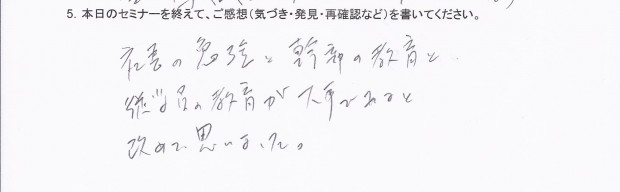 5. 本日のセミナーを終えて、ご感想(気づき・発見・再確認など)を書いてください。
社長の勉強と幹部の教育と
従業員の教育が大事であると
改めて思いました。